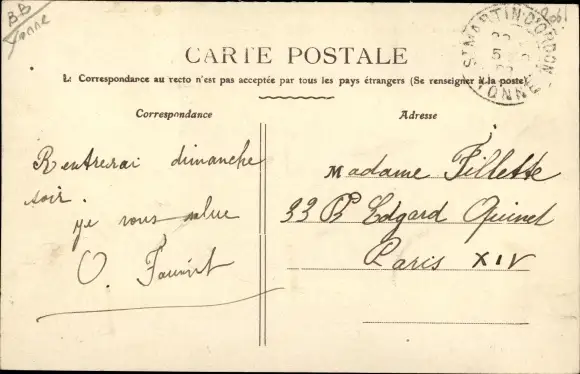 BB
Yonne
ST MARTIN D'ORDON
YONNE
CARTE POSTALE
La Correspondance au recto n'est pas acceptée par tous les pays étrangers (Se renseigner à la poste)
Correspondance
Rentrerai dimanche
soir.
je vous salue
O.
Adresse
Madame Fillette
33 B Edgard Quinet
Paris XIV